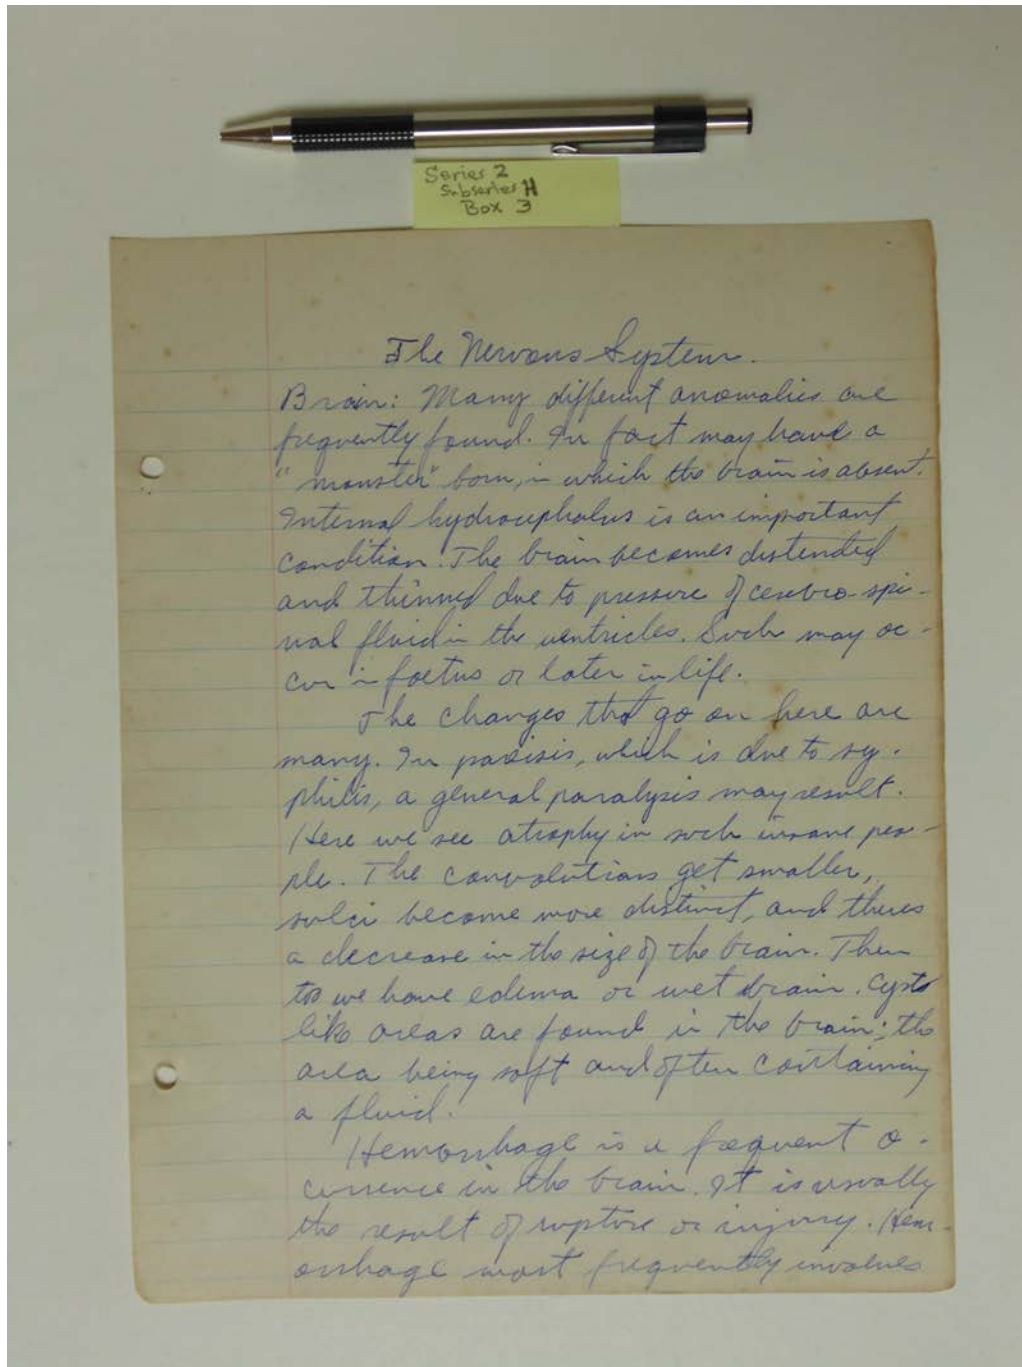 Series 2
Subseries H
Box 3
The Nervous System.
Brain: Many different anomalies are
frequently found. In fact may have a
"monster" born, in which the brain is absent.
Internal hydrocephalus is an important
condition. The brain becomes distended
and thinned due to pressure of cerebro-spi-
nal fluid in the ventricles. Such may oc-
cur in foetus or later in life.
The changes that go on here are
many. In paresis, which is due to sy-
philis, a general paralysis may result.
Here we see atrophy in such insane peo-
ple. The convolutions get smaller,
sulci become more distinct, and theres
a decrease in the size of the brain. Then
too we have edema or wet brain. Cysts
like areas are found in the brain; the
area being soft and often containing
a fluid.
Hemorrhage is a frequent o-
currence in the brain. It is usually
the result of rupture or injury. Hem-
orrhage most frequently involves